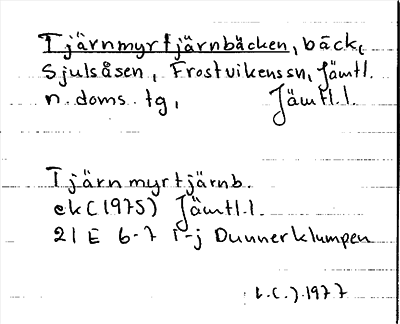 Tjärnmyrtjärnbäcken, bäck,
Sjulsåsen, Frostvikenssn, Jämtl.
n. doms. tg, Jämtl.l.
Tjärnmyrtjärnb.
ek (1975) Jämtl.l.
21 E 6-7 i-j Dunnerklumpen
1977